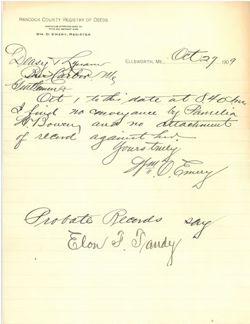 HANCOCK COUNTY REGISTRY OF DEEDS
WM. O. EMERY, REGISTER
ELLSWORTH, ME., Oct 27 1909
Deasy & Lynam
Bar Harbor, Me
Gentlemen
Oct 1 to this date at 8 40 am
I find no conveyance by Pamelia
Bowen and no attachment
of record against her
Yours truly
Wm O. Emery
Probate Records say
Elon F. Tandy